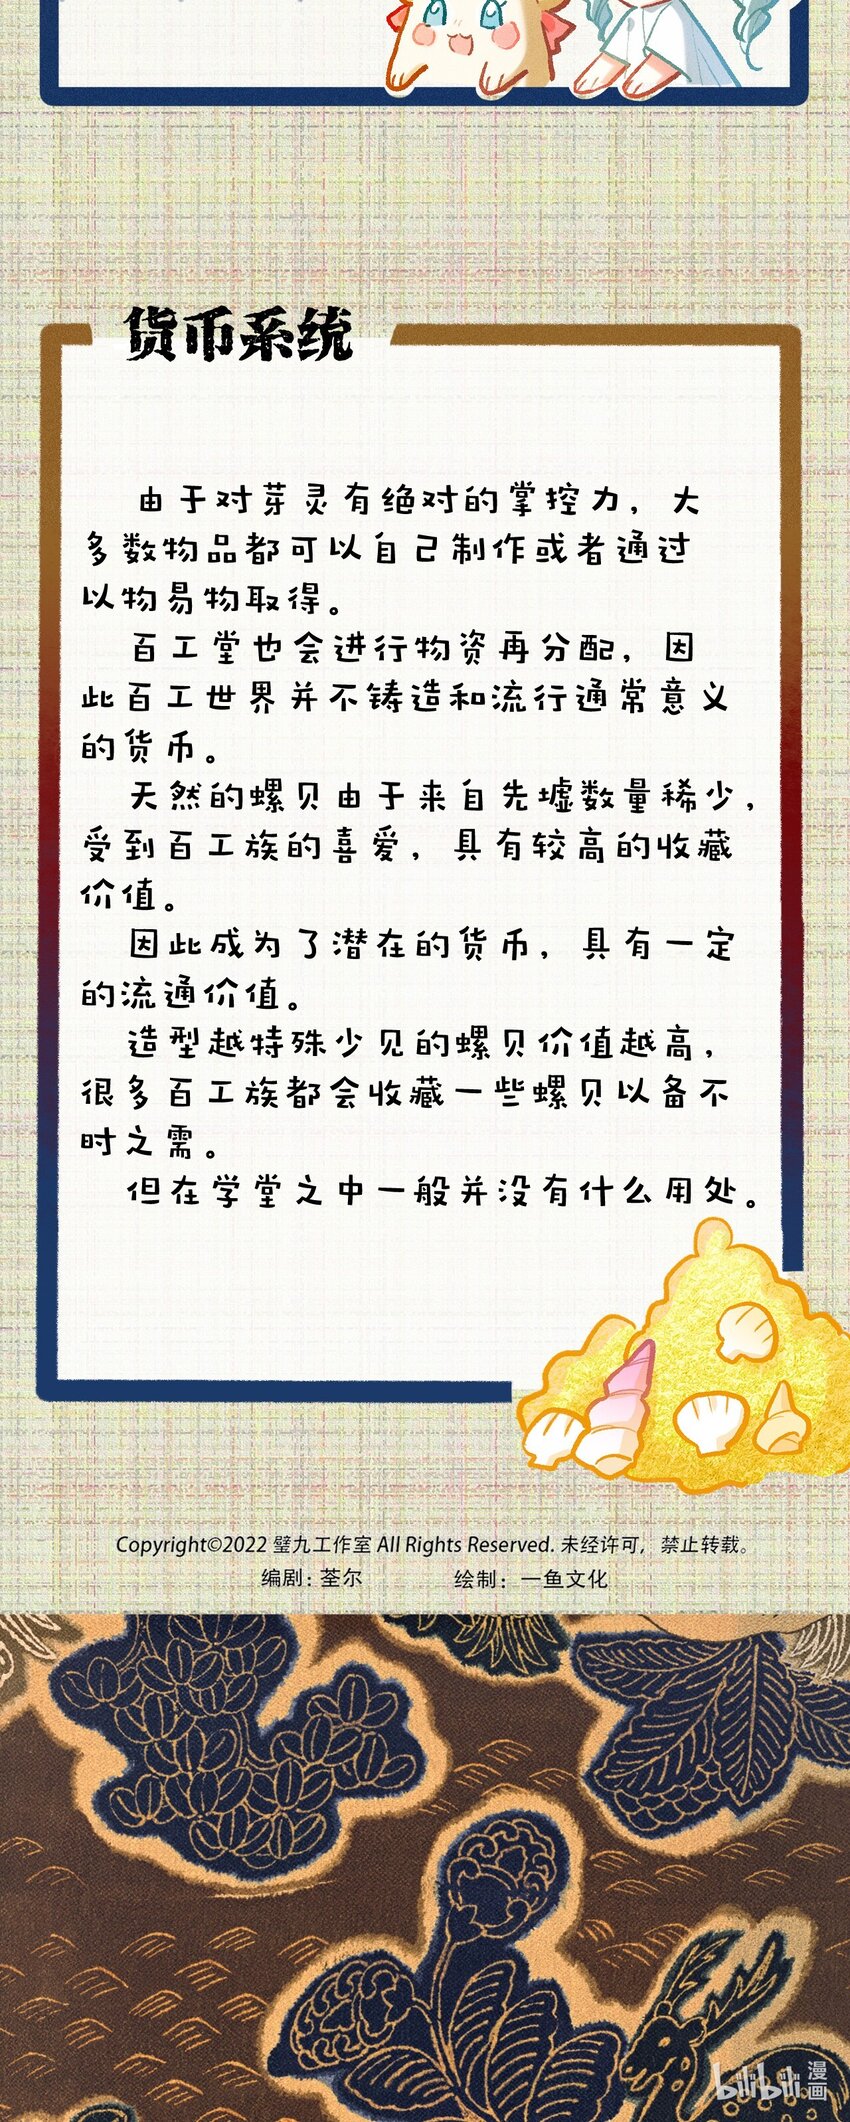 货币系统
由于对芽灵有绝对的掌控力，大
多数物品都可以自己制作或者通过
以物易物取得。
百工堂也会进行物资再分配，因
此百工世界并不铸造和流行通常意义
的货币。
天然的螺贝由于来自先墟数量稀少，
受到百工族的喜爱，具有较高的收藏
价值。
因此成为了潜在的货币，具有一定
的流通价值。
造型越特殊少见的螺贝价值越高，
很多百工族都会收藏一些螺贝以备不
时之需。
但在学堂之中一般并没有什么用处。
Copyright©2022 璧九工作室 All Rights Reserved. 未经许可，禁止转载。
编剧：荃尔 绘制：一鱼文化
bilibili 漫画